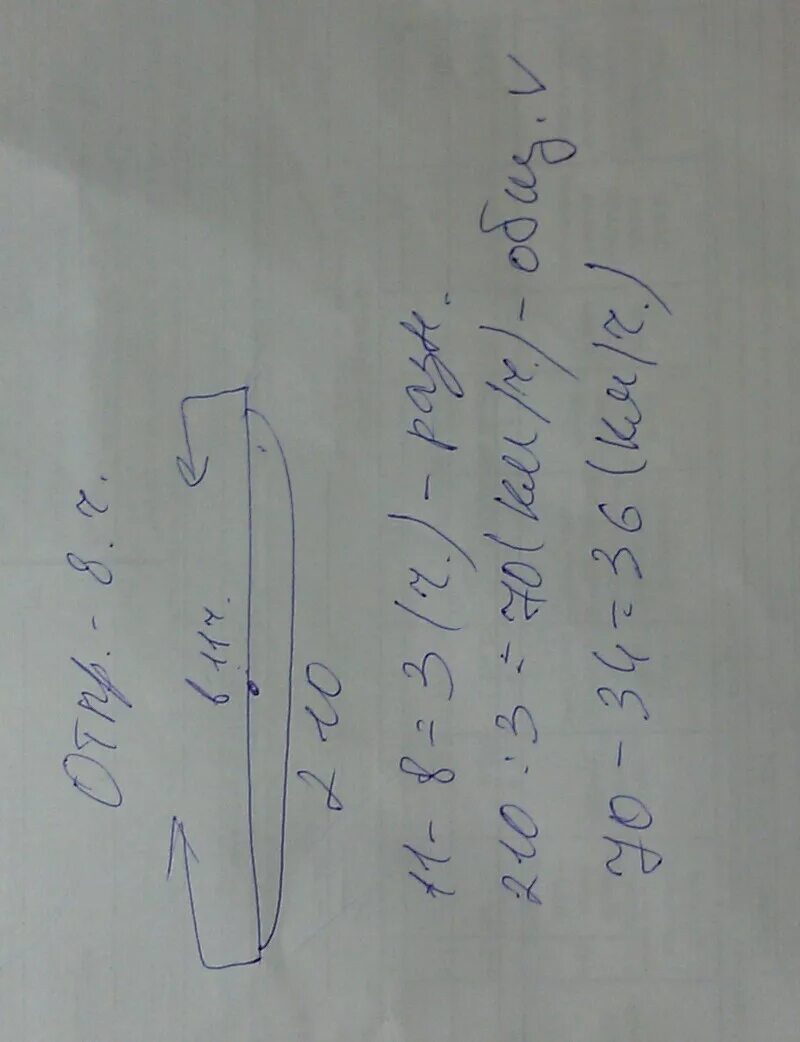 Отпр. - 8 ч.
в 11ч.
210
11 - 8 = 3 (ч.) - разн.
210 : 3 = 70 (км/ч.) - общ. V
70 - 34 = 36 (км/ч.)